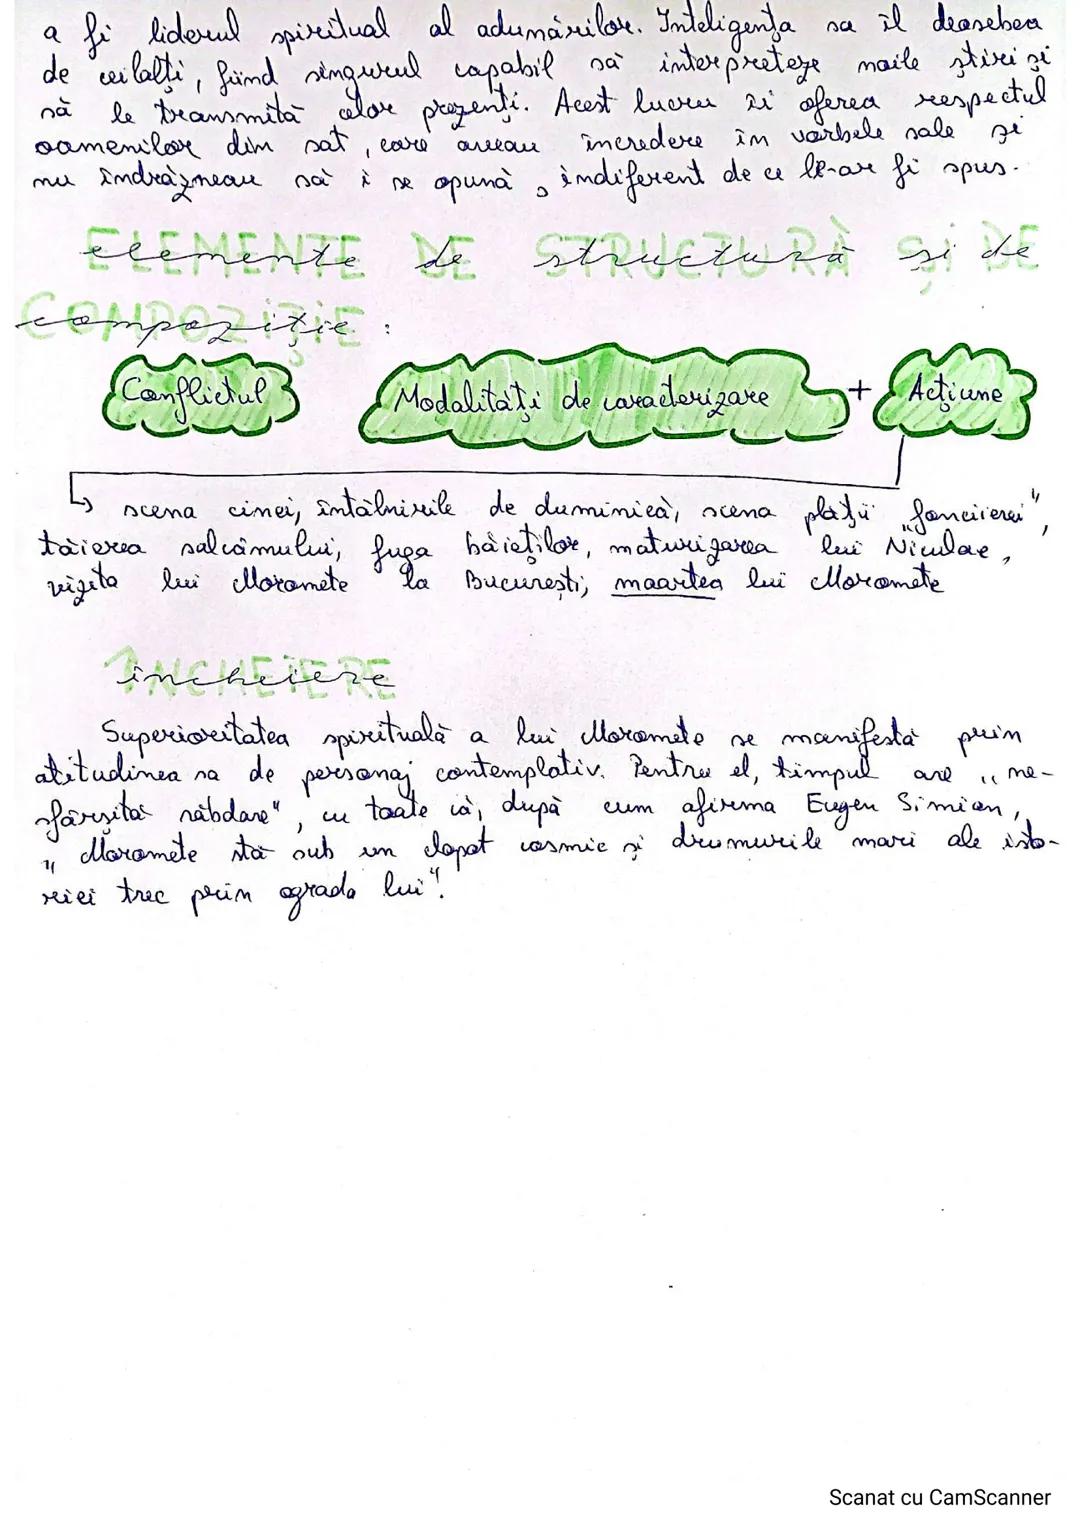 a fi liderul spiritual al adunărilor. Inteligența sa îl deosebea
de ceilalți, fiind singurul capabil să interpreteze noile știri și
să le transmită celor prezenți. Acest lucru îi oferea respectul
oamenilor din sat, care aveau încredere în vorbele sale și
nu îndrăzneau să i se opună, indiferent de ce le-ar fi spus.
ELEMENTE DE STRUCTURĂ ȘI DE
COMPOZIȚIE:
Conflictul Modalități de caracterizare + Acțiune
scena cinei, întâlnirile de duminică, scena plății „fonciirei",
tăierea salcâmului, fuga băieților, maturizarea lui Niculae,
vizita lui Moromete la București; moartea lui Moromete
ÎNCHEIERE
Superioritatea spirituală a lui Moromete se manifestă prin
atitudinea sa de personaj contemplativ. Pentru el, timpul are „ne-
sfârșită răbdare", cu toate că, după cum afirma Eugen Simion,
„Moromete stă sub un clopot cosmic și drumurile mari ale isto-
riei trec prin ograda lui".
Scanat cu CamScanner